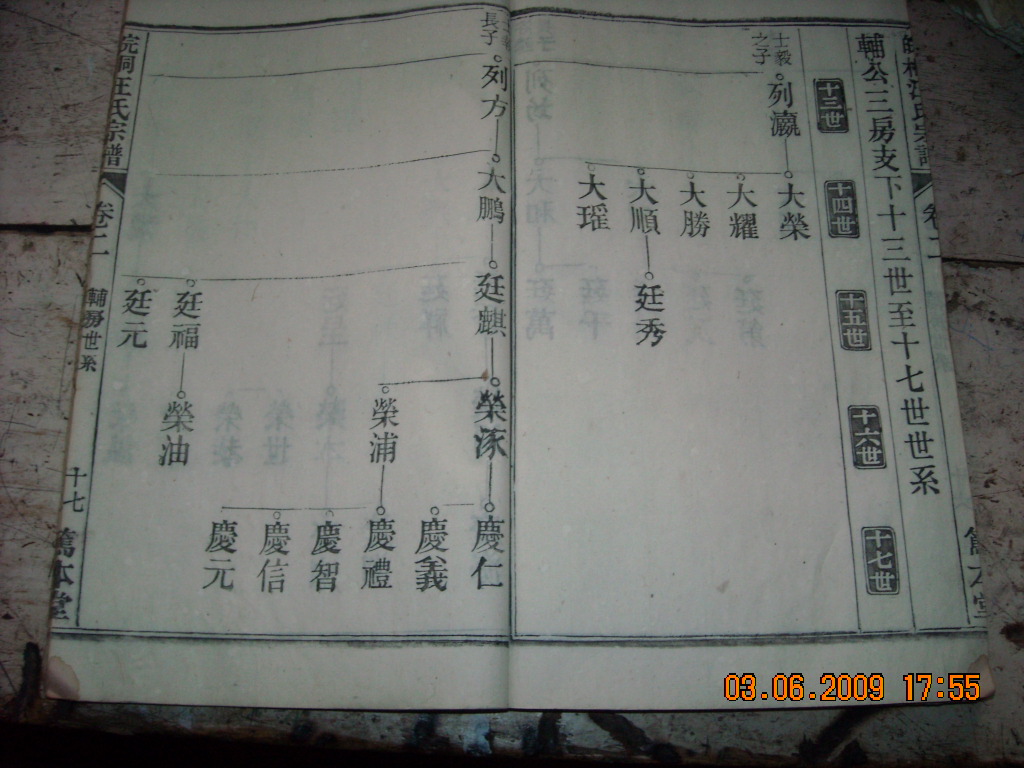 輔公三房支下十三世至十七世世系
十三世
十四世
十五世
十六世
十七世
士毅之子
列瀛
大榮
大耀
大勝
大順
廷秀
大瑤
長子
列方
大鵬
廷麒
榮涿
慶仁
慶義
榮浦
慶禮
慶智
慶信
慶元
廷福
榮油
廷元
皖桐汪氏宗譜
卷二
輔房世系
十七
篤本堂
03.06.2009 17:55